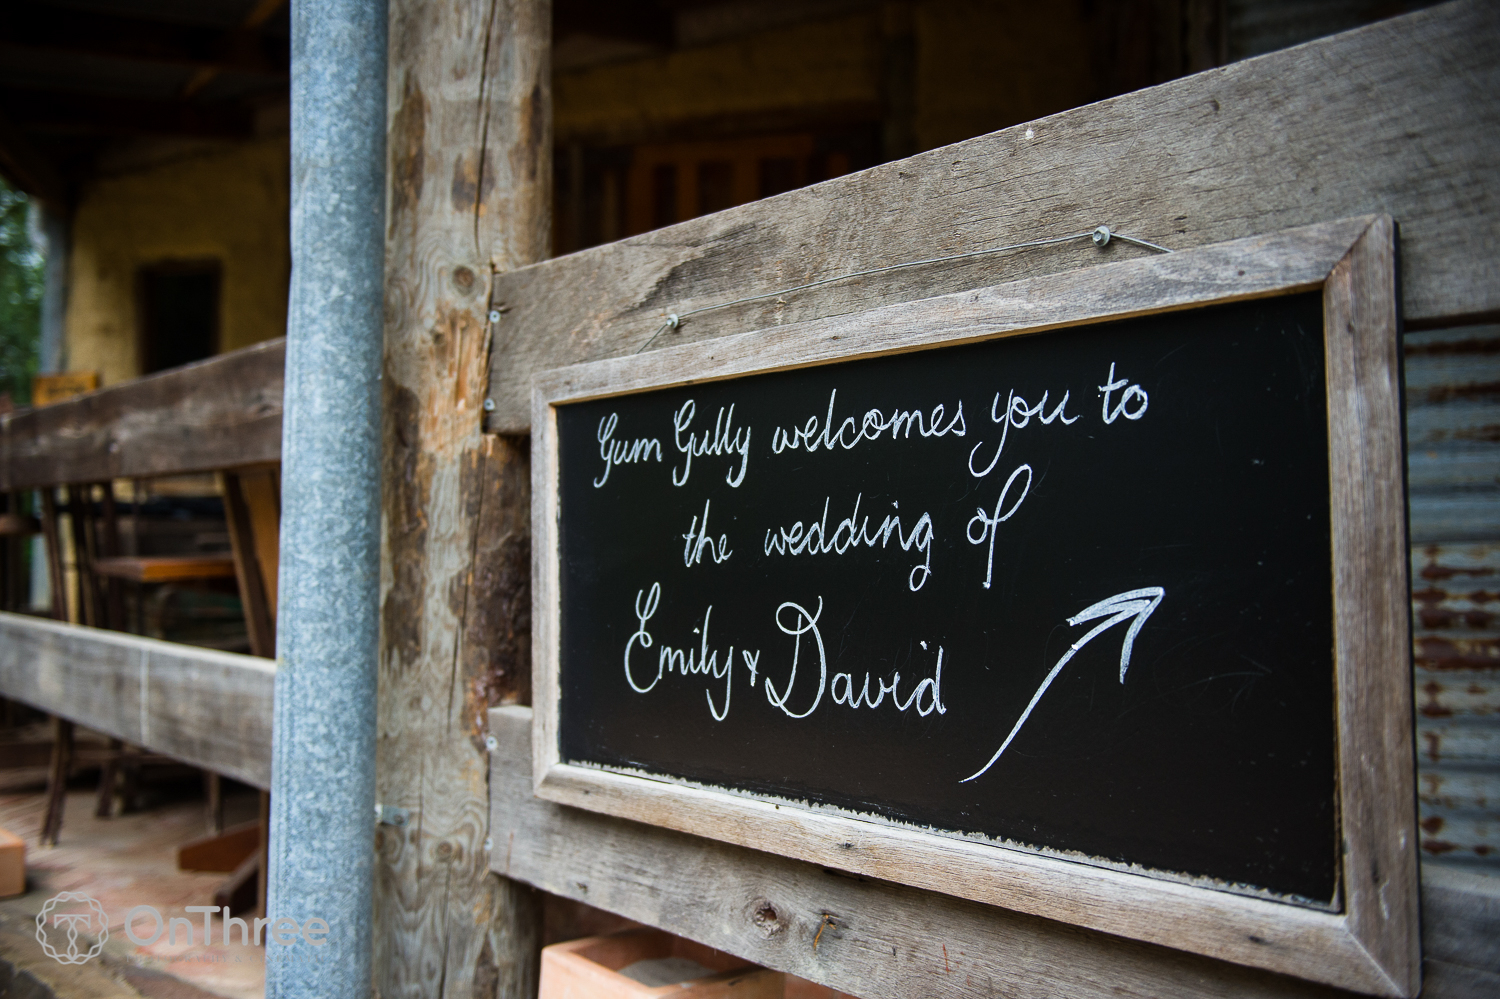 Gum Gully welcomes you to
the wedding of
Emily & David
OnThree